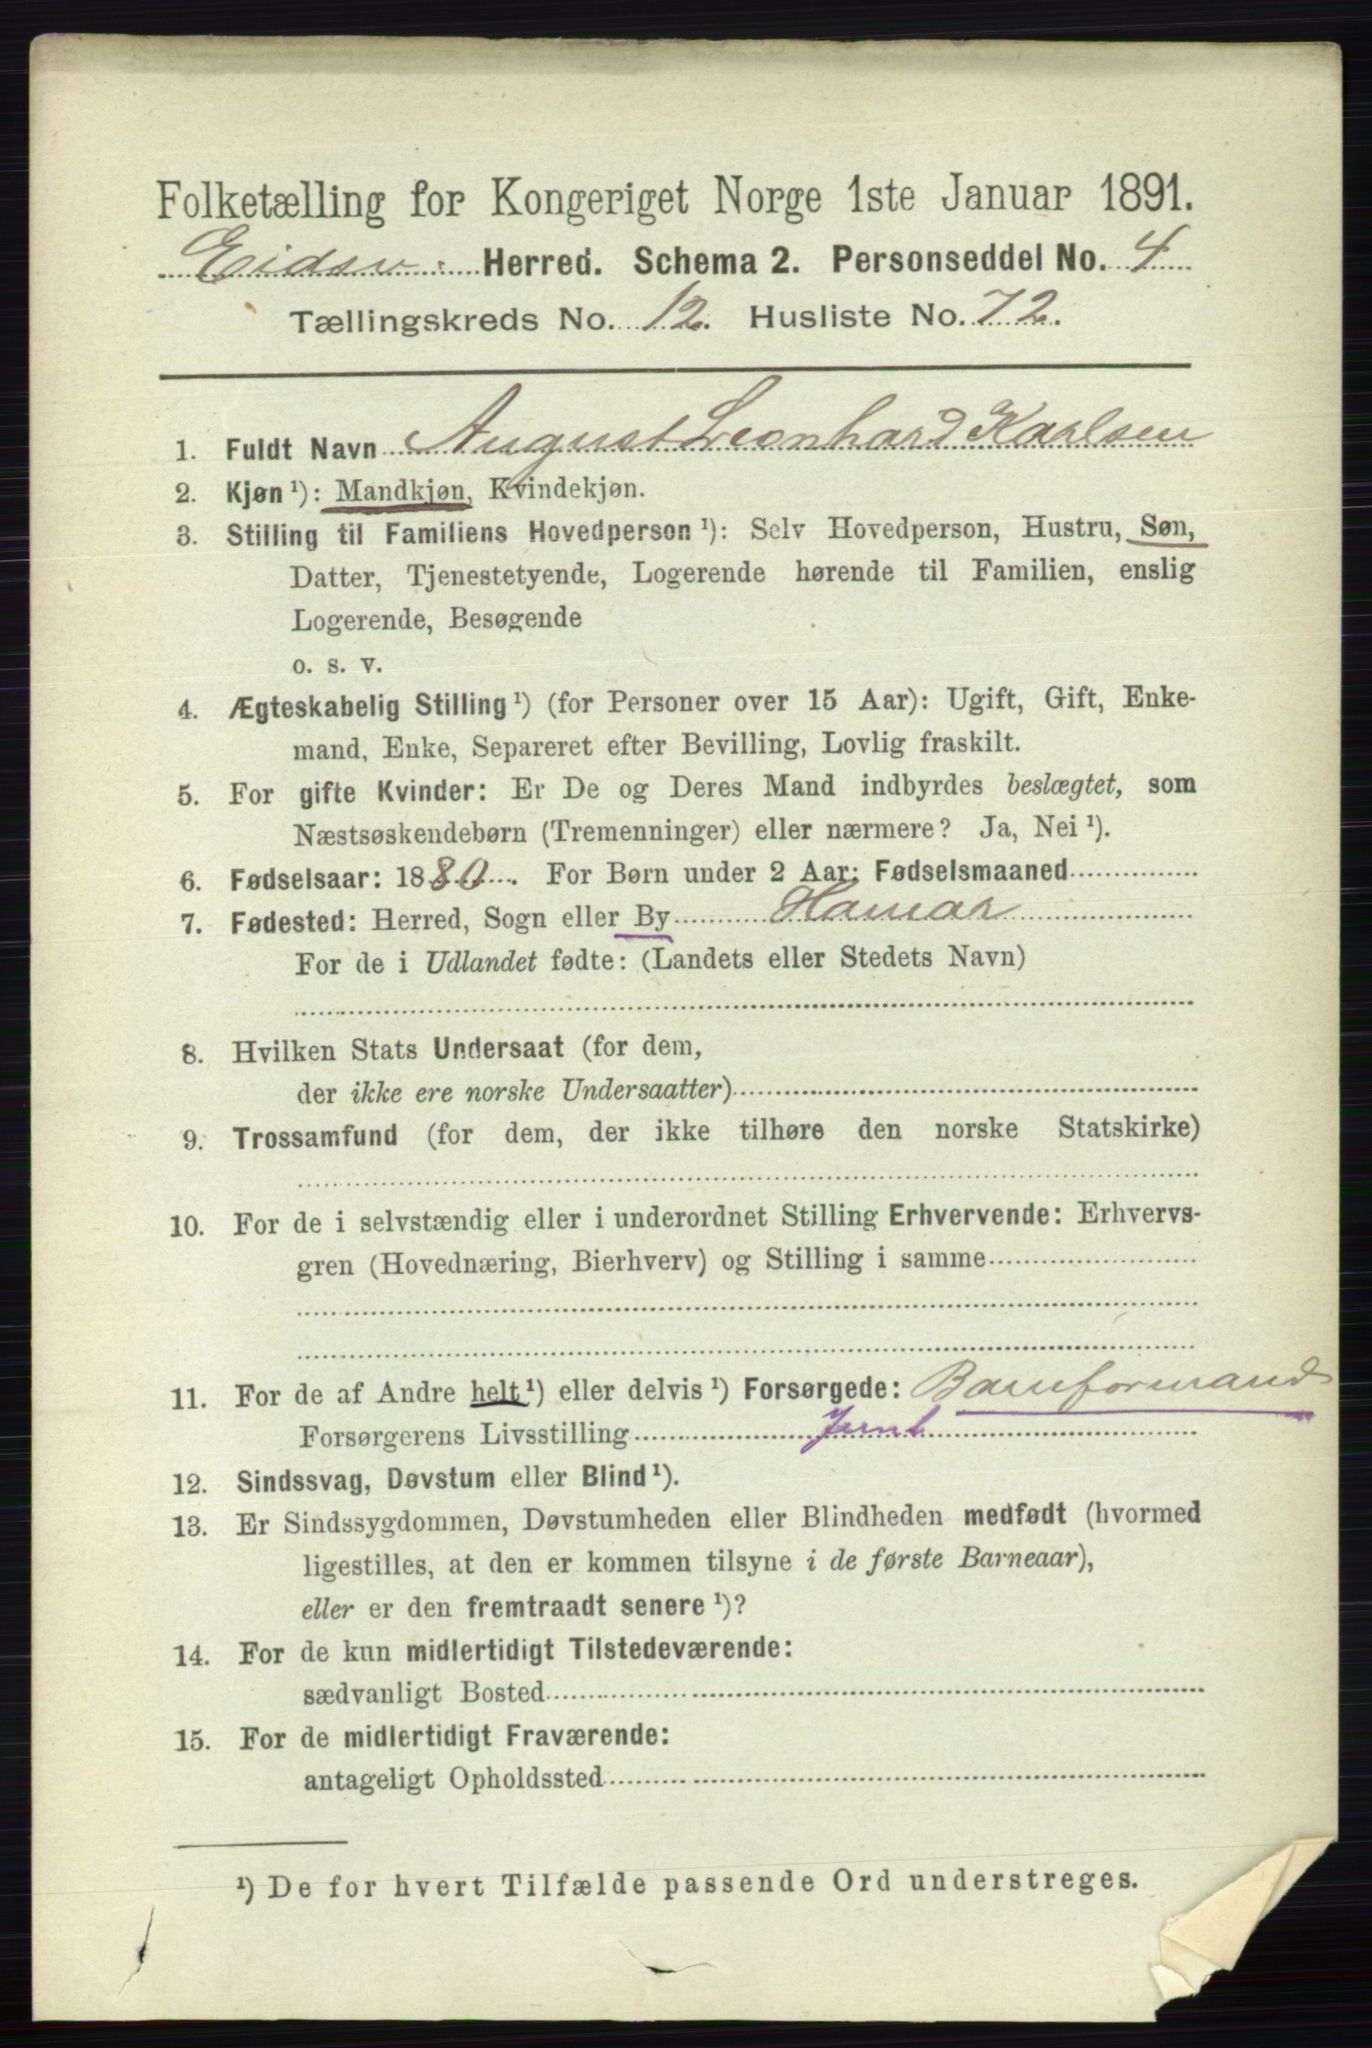 Folketælling for Kongeriget Norge 1ste Januar 1891.
Eidsv. Herred. Schema 2. Personseddel No. 4
Tællingskreds No. 12. Husliste No. 72.
1. Fuldt Navn August Leonhard Karlsen
2. Kjøn ¹): Mandkjøn, Kvindekjøn.
3. Stilling til Familiens Hovedperson ¹): Selv Hovedperson, Hustru, Søn,
Datter, Tjenestetyende, Logerende hørende til Familien, enslig
Logerende, Besøgende
o. s. v.
4. Ægteskabelig Stilling ¹) (for Personer over 15 Aar): Ugift, Gift, Enke-
mand, Enke, Separeret efter Bevilling, Lovlig fraskilt.
5. For gifte Kvinder: Er De og Deres Mand indbyrdes beslægtet, som
Næstsøskendebørn (Tremenninger) eller nærmere? Ja, Nei ¹).
6. Fødselsaar: 1880. For Børn under 2 Aar: Fødselsmaaned
7. Fødested: Herred, Sogn eller By Hamar
For de i Udlandet fødte: (Landets eller Stedets Navn)
8. Hvilken Stats Undersaat (for dem,
der ikke ere norske Undersaatter)
9. Trossamfund (for dem, der ikke tilhøre den norske Statskirke)
10. For de i selvstændig eller i underordnet Stilling Erhvervende: Erhvervs-
gren (Hovednæring, Bierhverv) og Stilling i samme
11. For de af Andre helt ¹) eller delvis ¹) Forsørgede: Baneformand
Forsørgerens Livsstilling Jernb
12. Sindssvag, Døvstum eller Blind ¹).
13. Er Sindssygdommen, Døvstumheden eller Blindheden medfødt (hvormed
ligestilles, at den er kommen tilsyne i de første Barneaar),
eller er den fremtraadt senere ¹)?
14. For de kun midlertidigt Tilstedeværende:
sædvanligt Bosted
15. For de midlertidigt Fraværende:
antageligt Opholdssted
¹) De for hvert Tilfælde passende Ord understreges.